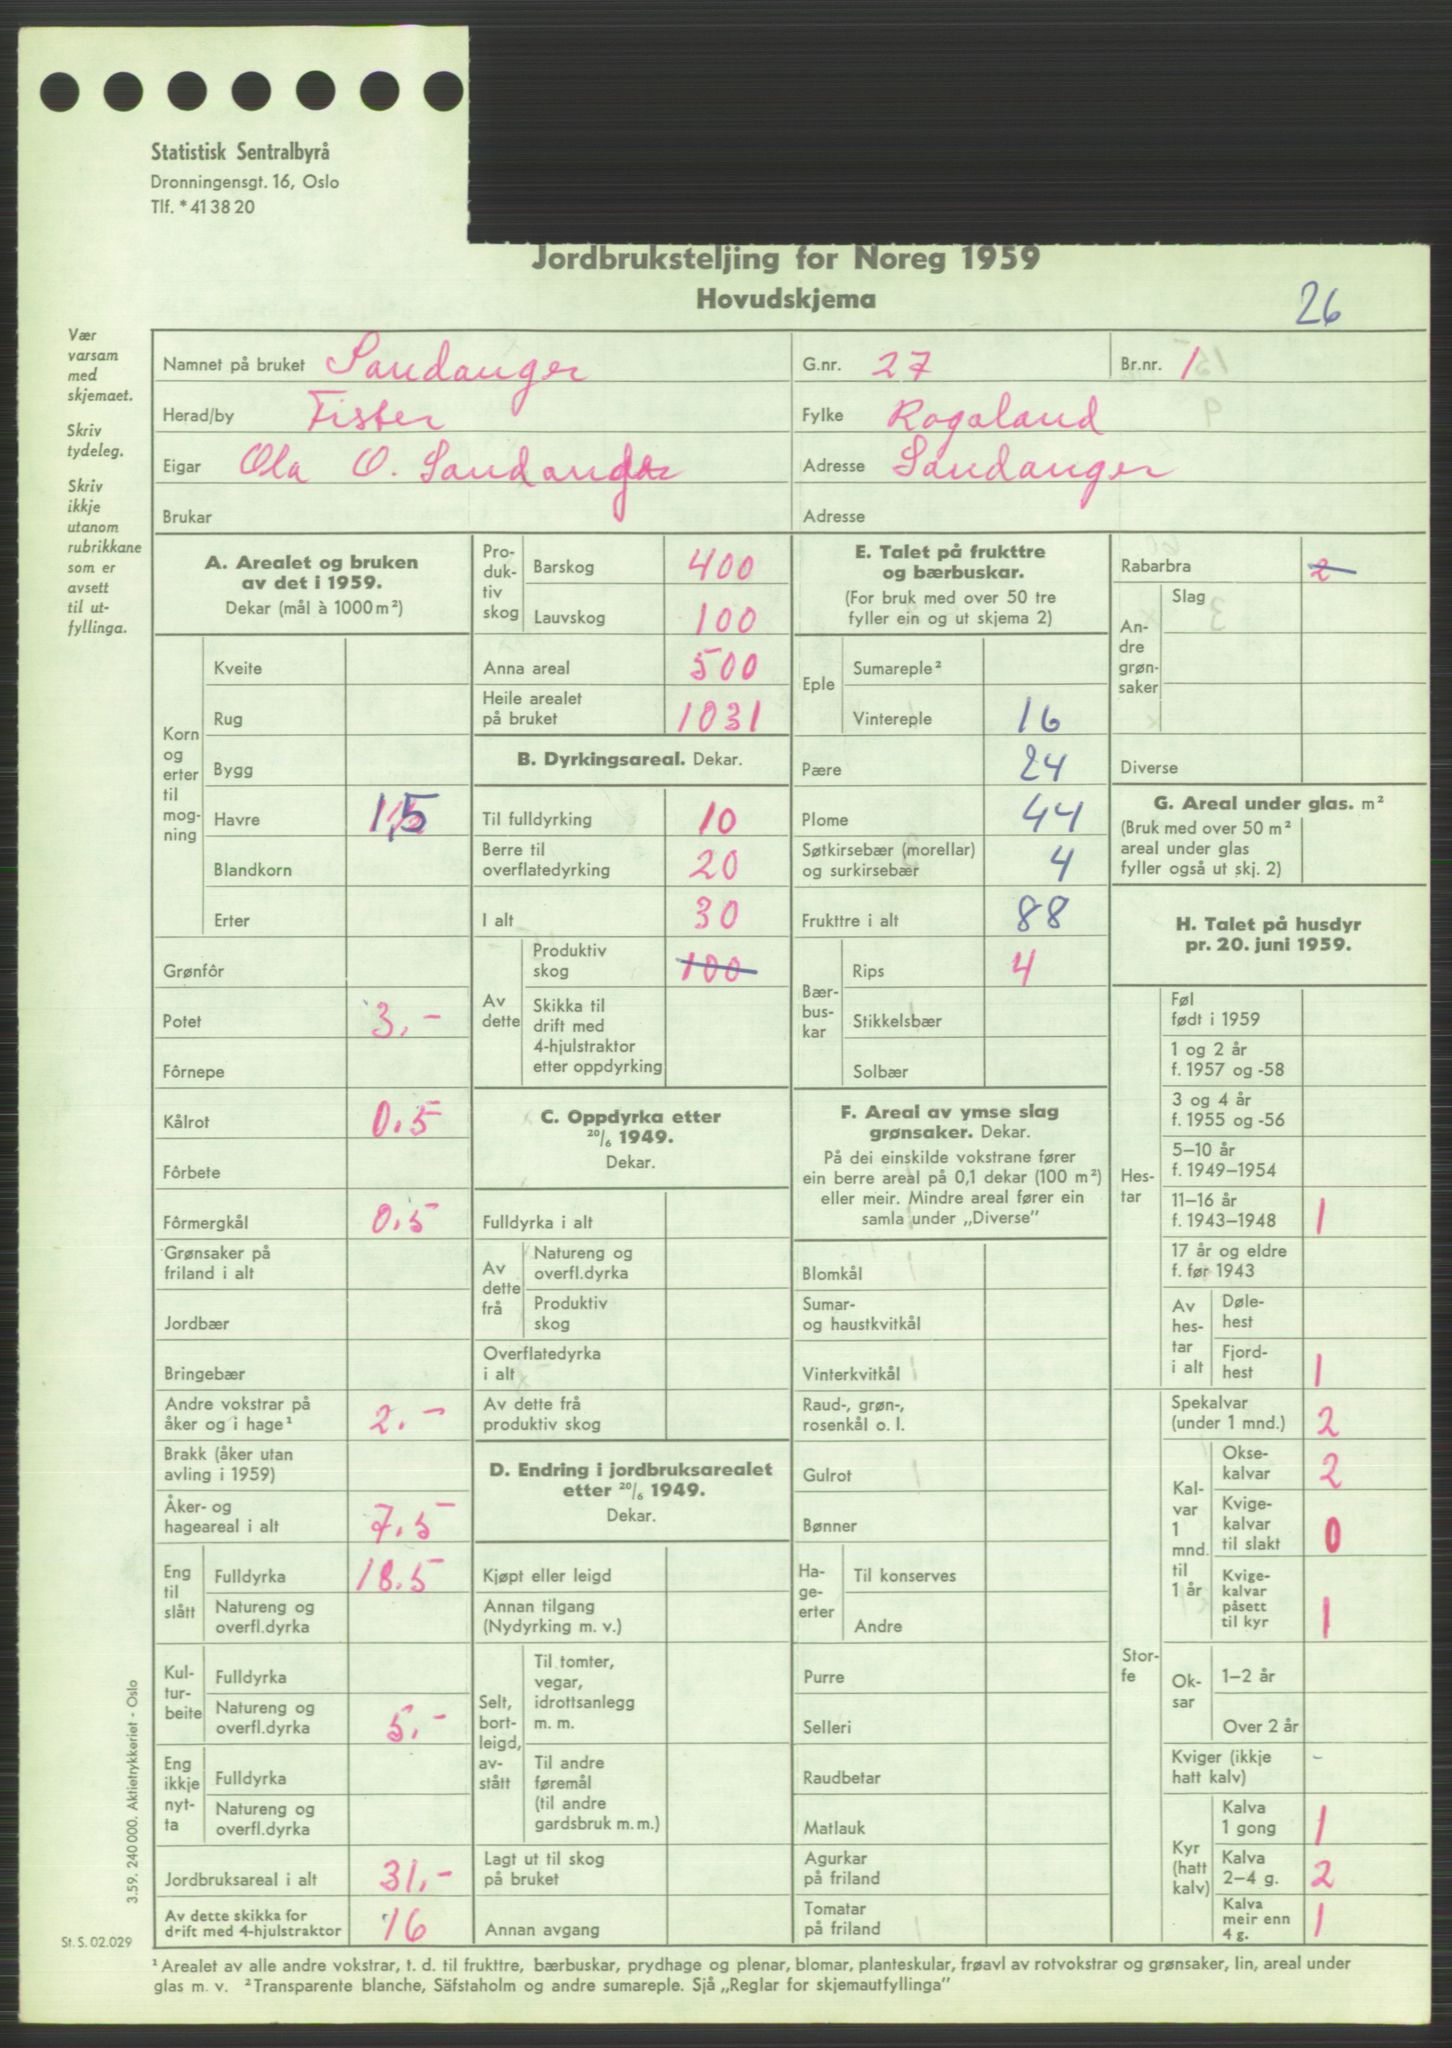 Statistisk Sentralbyrå
Dronningensgt. 16, Oslo
Tlf. * 41 38 20
Jordbruksteljing for Noreg 1959
Hovudskjema
26
Vær
varsam
med
skjemaet.
Skriv
tydeleg.
Skriv
ikkje
utanom
rubrikkane
som er
avsett
til ut-
fyllinga.
Namnet på bruket Sandanger G.nr. 27 Br.nr. 1
Herad/by Fister Fylke Rogaland
Eigar Ola O. Sandanger Adresse Sandanger
Brukar Adresse
A. Arealet og bruken
av det i 1959.
Dekar (mål à 1000 m²)
Korn
og
erter
til
mog-
ning
Kveite
Rug
Bygg
Havre 1,5
Blandkorn
Erter
Grønfôr
Potet 3.-
Fôrnepe
Kålrot 0.5
Fôrbete
Fôrmergkål 0.5
Grønsaker på
friland i alt
Jordbær
Bringebær
Andre vokstrar på
åker og i hage¹ 2.-
Brakk (åker utan
avling i 1959)
Åker- og
hageareal i alt 7.5
Eng
til
slått
Fulldyrka 18.5
Natureng og
overfl.dyrka
Kul-
tur-
beite
Fulldyrka
Natureng og
overfl.dyrka 5.-
Eng
ikkje
nyt-
ta
Fulldyrka
Natureng og
overfl.dyrka
Jordbruksareal i alt 31,-
Av dette skikka for
drift med 4-hjulstraktor 16
Pro-
duk-
tiv
skog
Barskog 400
Lauvskog 100
Anna areal 500
Heile arealet
på bruket 1031
B. Dyrkingsareal. Dekar.
Til fulldyrking 10
Berre til
overflatedyrking 20
I alt 30
Av
dette
Produktiv
skog 100
Skikka til
drift med
4-hjulstraktor
etter oppdyrking
C. Oppdyrka etter
20/6 1949.
Dekar.
Fulldyrka i alt
Av
dette
frå
Natureng og
overfl.dyrka
Produktiv
skog
Overflatedyrka
i alt
Av dette frå
produktiv skog
D. Endring i jordbruksarealet
etter 20/6 1949.
Dekar.
Kjøpt eller leigd
Annan tilgang
(Nydyrking m. v.)
Selt,
bort-
leigd,
av-
stått
Til tomter,
vegar,
idrottsanlegg
m. m.
Til andre
føremål
(til andre
gardsbruk m. m.)
Lagt ut til skog
på bruket
Annan avgang
E. Talet på frukttre
og bærbuskar.
(For bruk med over 50 tre
fyller ein og ut skjema 2)
Eple
Sumareple²
Vintereple 16
Pære 24
Plome 44
Søtkirsebær (morellar)
og surkirsebær 4
Frukttre i alt 88
Bær-
bus-
kar
Rips 4
Stikkelsbær
Solbær
F. Areal av ymse slag
grønsaker. Dekar.
På dei einskilde vokstrane fører
ein berre areal på 0,1 dekar (100 m²)
eller meir. Mindre areal fører ein
samla under „Diverse”
Blomkål
Sumar-
og haustkvitkål
Vinterkvitkål
Raud-, grøn-,
rosenkål o. l.
Gulrot
Bønner
Ha-
ge-
erter
Til konserves
Andre
Purre
Selleri
Raudbetar
Matlauk
Agurkar
på friland
Tomatar
på friland
Rabarbra 2
An-
dre
grøn-
saker
Slag
Diverse
G. Areal under glas. m²
(Bruk med over 50 m²
areal under glas
fyller også ut skj. 2)
H. Talet på husdyr
pr. 20. juni 1959.
Hes-
tar
Føl
født i 1959
1 og 2 år
f. 1957 og -58
3 og 4 år
f. 1955 og -56
5–10 år
f. 1949–1954
11–16 år
f. 1943–1948 1
17 år og eldre
f. før 1943
Av
hes-
tar
i alt
Døle-
hest
Fjord-
hest 1
Stor-
fe
Spekalvar
(under 1 mnd.) 2
Kal-
var
1
mnd.
til
1 år
Okse-
kalvar 2
Kvige-
kalvar
til slakt 0
Kvige-
kalvar
påsett
til kyr 1
Ok-
sar
1–2 år
Over 2 år
Kviger (ikkje
hatt kalv) -
Kyr
(hatt
kalv)
Kalva
1 gong 1
Kalva
2–4 g. 2
Kalva
meir enn
4 g. 1
3.59. 240 000. Aktietrykkeriet - Oslo
St. S. 02.029
¹ Arealet av alle andre vokstrar, t. d. til frukttre, bærbuskar, prydhage og plenar, blomar, planteskular, frøavl av rotvokstrar og grønsaker, lin, areal under
glas m. v. ² Transparente blanche, Säfstaholm og andre sumareple. Sjå „Reglar for skjemautfyllinga”